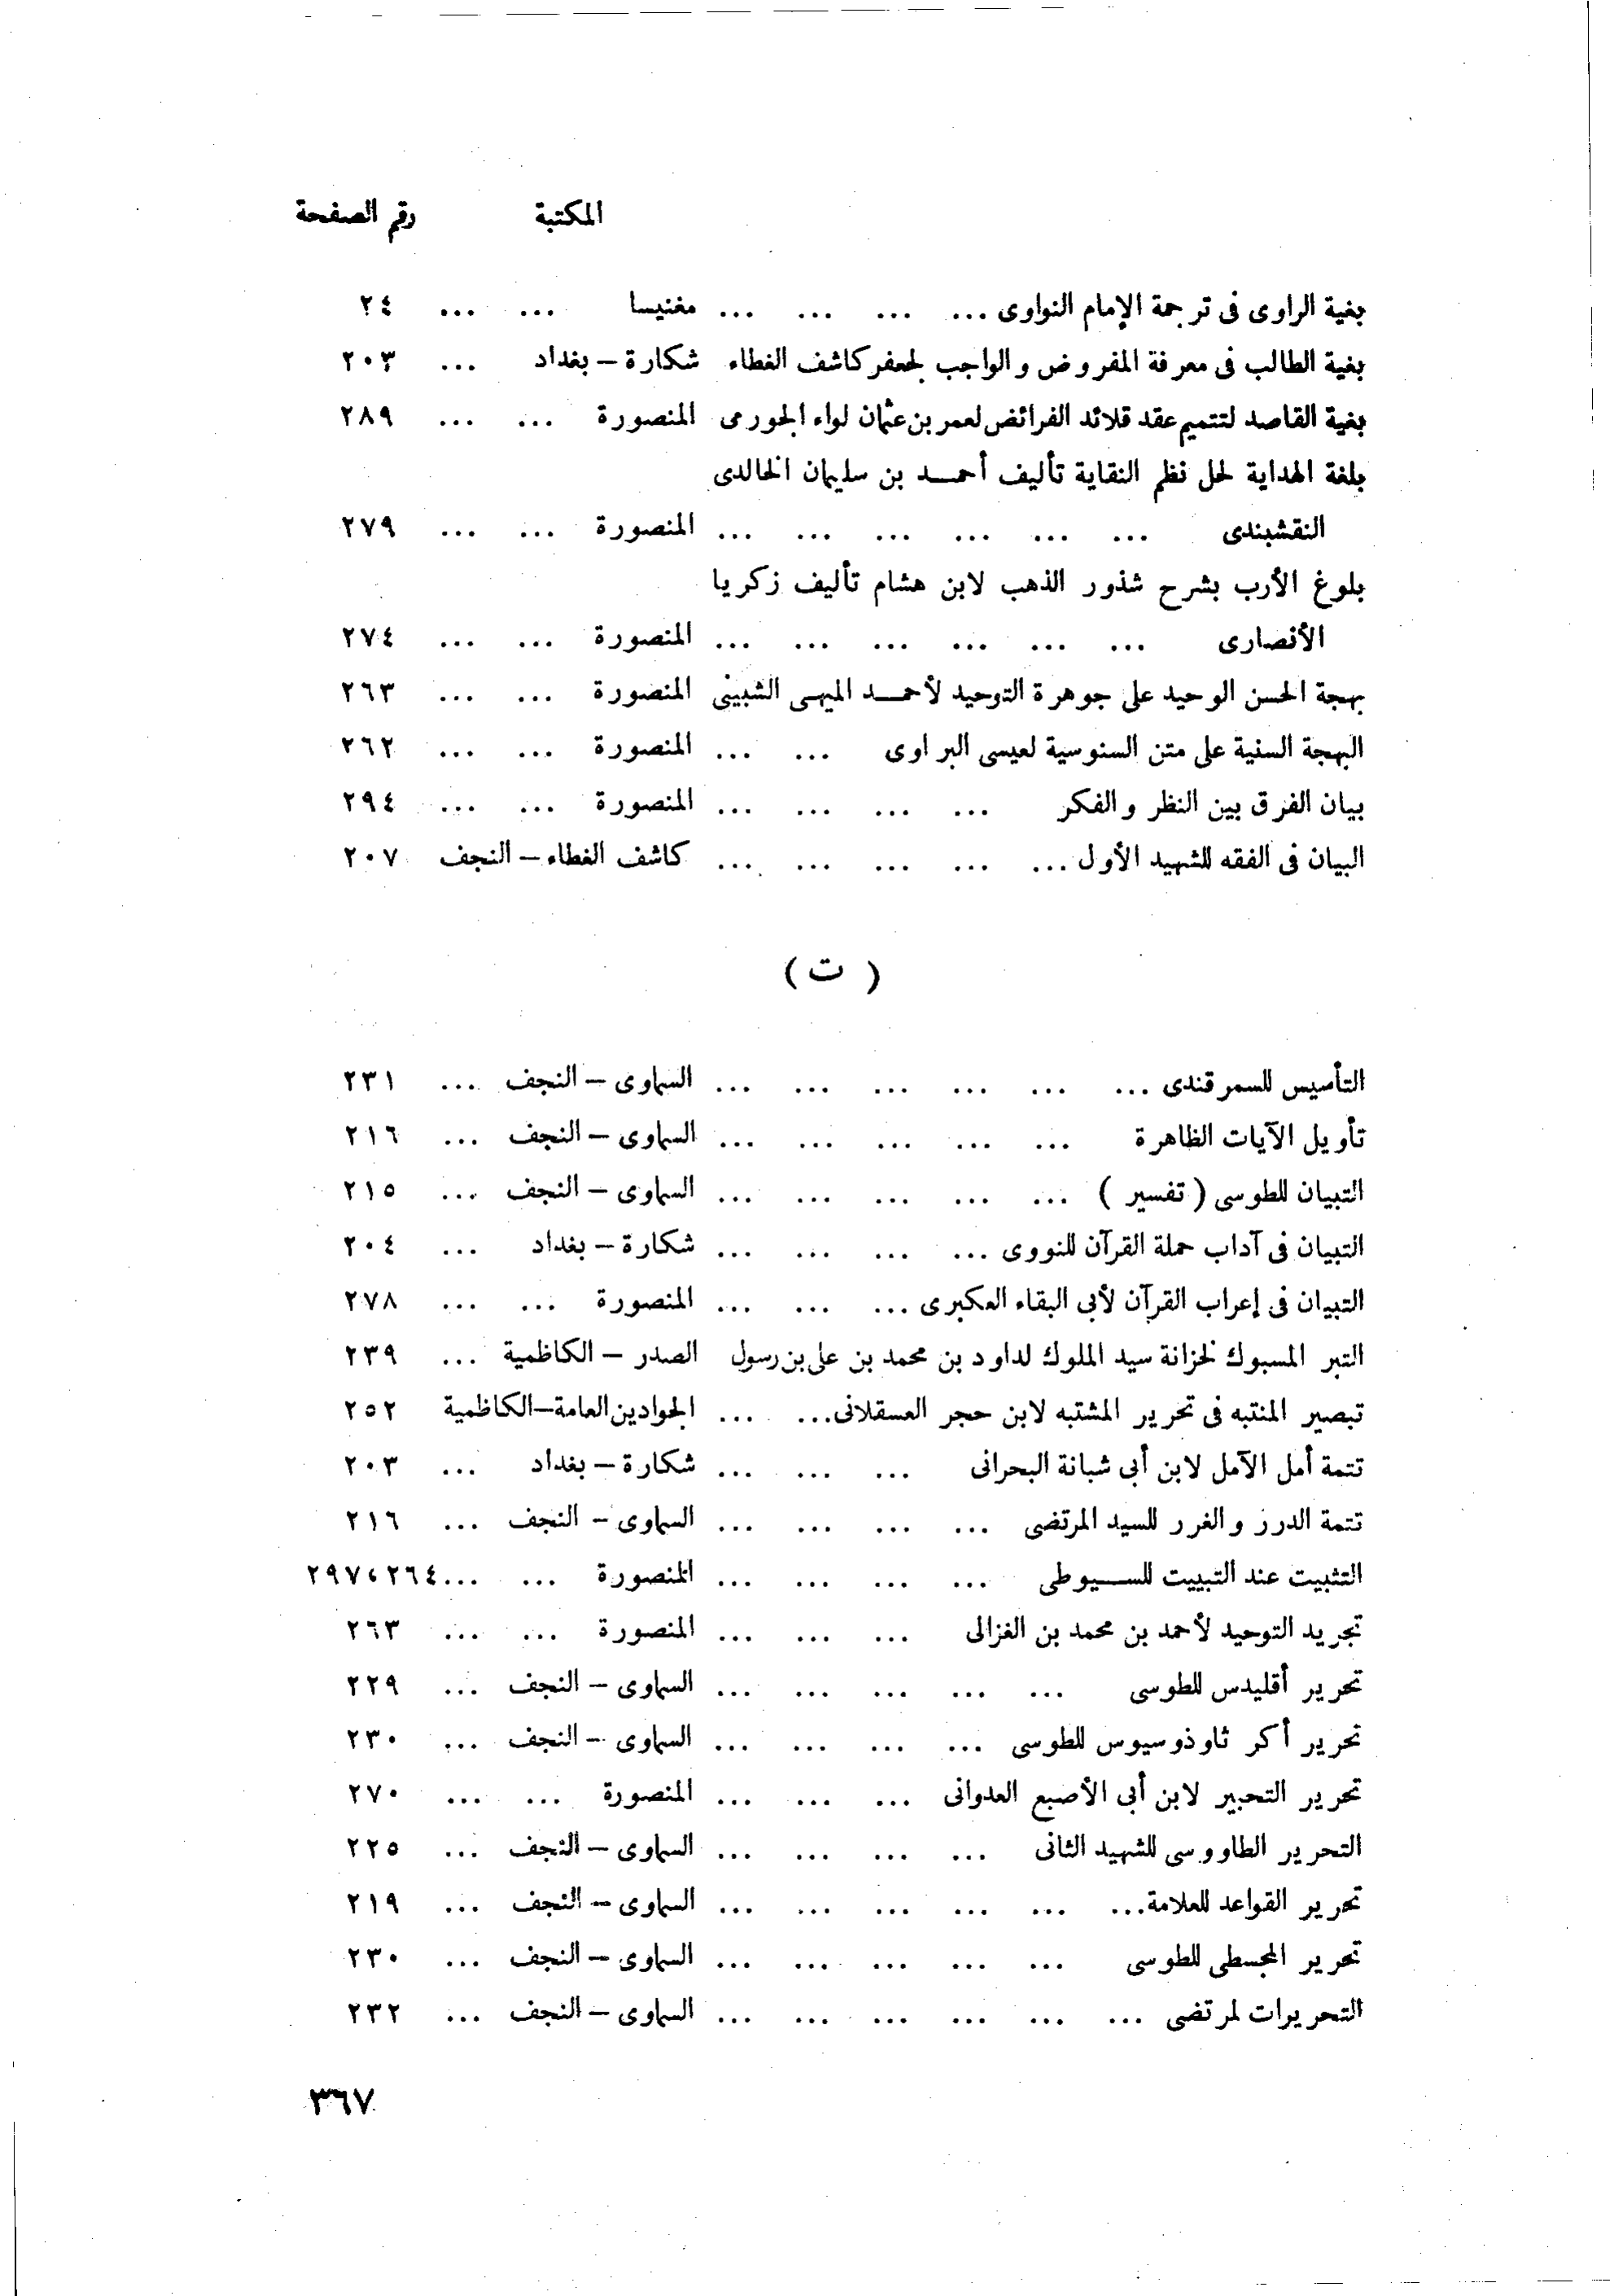 المكتبة رقم الصفحة
بغية الراوى فى ترجمة الإمام النواوى ... ... ... ... مغنيسا ... ... ٢٤
بغية الطالب فى معرفة المفروض والواجب لجعفر كاشف الغطاء شكارة – بغداد ... ٢٠٣
بغية القاصد لتتميم عقد قلائد الفرائض لعمر بن عثمان لواء الجورمى المنصورة ... ... ٢٨٩
بلغة الهداية لحل نظم النقاية تأليف أحمد بن سليمان الخالدى
النقشبندى ... ... ... ... ... ... المنصورة ... ... ٢٧٩
بلوغ الأرب بشرح شذور الذهب لابن هشام تأليف زكريا
الأنصارى ... ... ... ... ... ... المنصورة ... ... ٢٧٤
بهجة الحسن الوحيد على جوهرة التوحيد لأحمد الميهى الشبينى المنصورة ... ... ٢٦٣
البهجة السنية على متن السنوسية لعيسى البراوى ... ... المنصورة ... ... ٢٦٢
بيان الفرق بين النظر والفكر ... ... ... ... المنصورة ... ... ٢٩٤
البيان فى الفقه للشهيد الأول ... ... ... ... ... كاشف الغطاء – النجف ٢٠٧
( ت )
التأسيس للسمرقندى ... ... ... ... ... ... السماوى – النجف ... ٢٣١
تأويل الآيات الظاهرة ... ... ... ... ... السماوى – النجف ... ٢١٦
التبيان للطوسى ( تفسير ) ... ... ... ... ... السماوى – النجف ... ٢١٥
التبيان فى آداب حملة القرآن للنووى ... ... ... ... شكارة – بغداد ... ٢٠٤
التبيان فى إعراب القرآن لأبى البقاء العكبرى ... ... ... المنصورة ... ... ٢٧٨
التبر المسبوك لخزانة سيد الملوك لداود بن محمد بن على بن رسول الصدر – الكاظمية ... ٢٣٩
تبصير المنتبه فى تحرير المشتبه لابن حجر العسقلانى ... ... الجوادين العامة–الكاظمية ٢٥٢
تتمة أمل الآمل لابن أبى شبانة البحرانى ... ... ... شكارة – بغداد ... ٢٠٣
تتمة الدرر والغرر للسيد المرتضى ... ... ... ... السماوى – النجف ... ٢١٦
التثبيت عند التبييت للسيوطى ... ... ... ... المنصورة ... ... ٢٦٤، ٢٩٧
تجريد التوحيد لأحمد بن محمد بن الغزالى ... ... ... المنصورة ... ... ٢٦٣
تحرير أقليدس للطوسى ... ... ... ... ... السماوى – النجف ... ٢٢٩
تحرير أكر ثاوذوسيوس للطوسى ... ... ... ... السماوى – النجف ... ٢٣٠
تحرير التحبير لابن أبى الأصبع العدوانى ... ... ... المنصورة ... ... ٢٧٠
التحرير الطاووسى للشهيد الثانى ... ... ... ... السماوى – النجف ... ٢٢٥
تحرير القواعد للعلامة ... ... ... ... ... ... السماوى – النجف ... ٢١٩
تحرير المجسطى للطوسى ... ... ... ... ... السماوى – النجف ... ٢٣٠
التحريرات لمرتضى ... ... ... ... ... ... السماوى – النجف ... ٢٣٢
٣٦٧